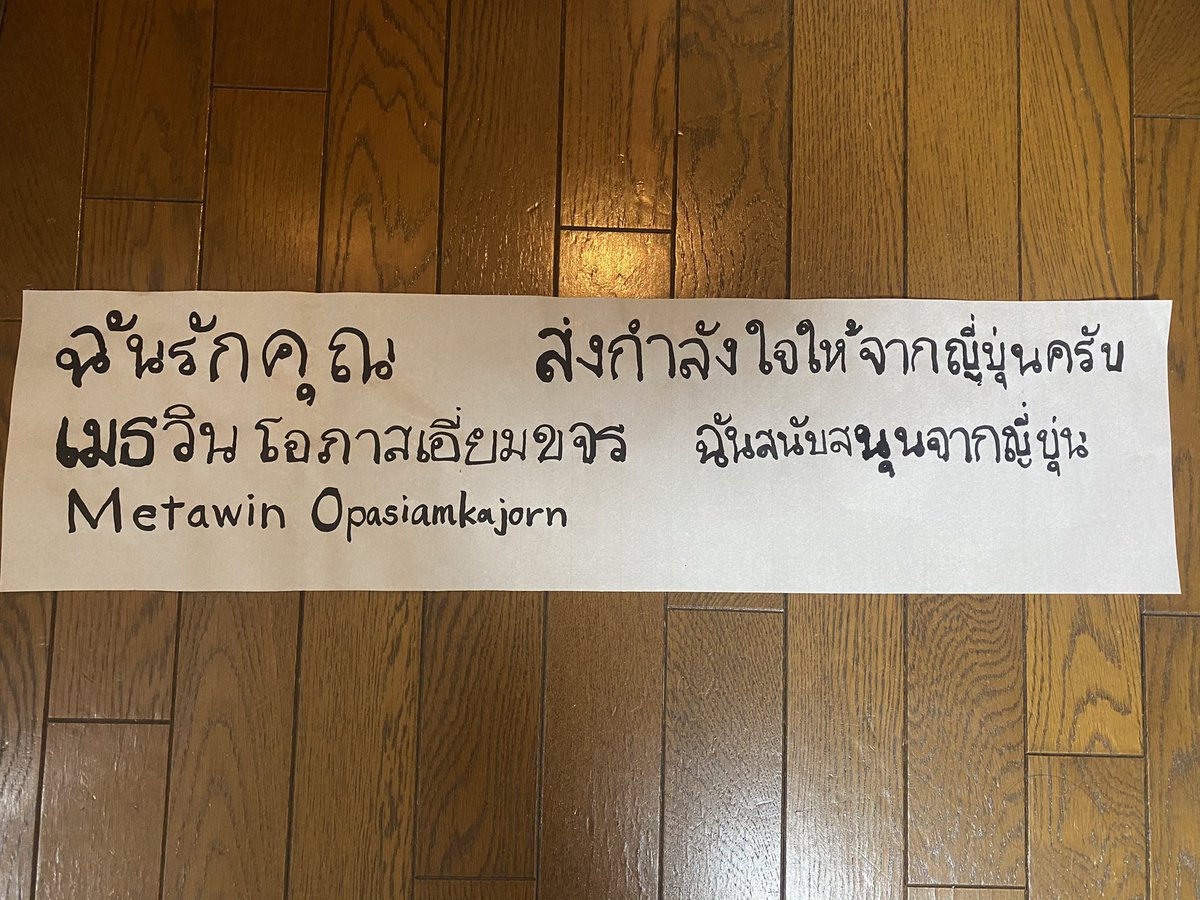 ฉันรักคุณ ส่งกำลังใจให้จากญี่ปุ่นครับ
เมธวิน โอภาสเอี่ยมขจร ฉันสนับสนุนจากญี่ปุ่น
Metawin Opasiamkajorn